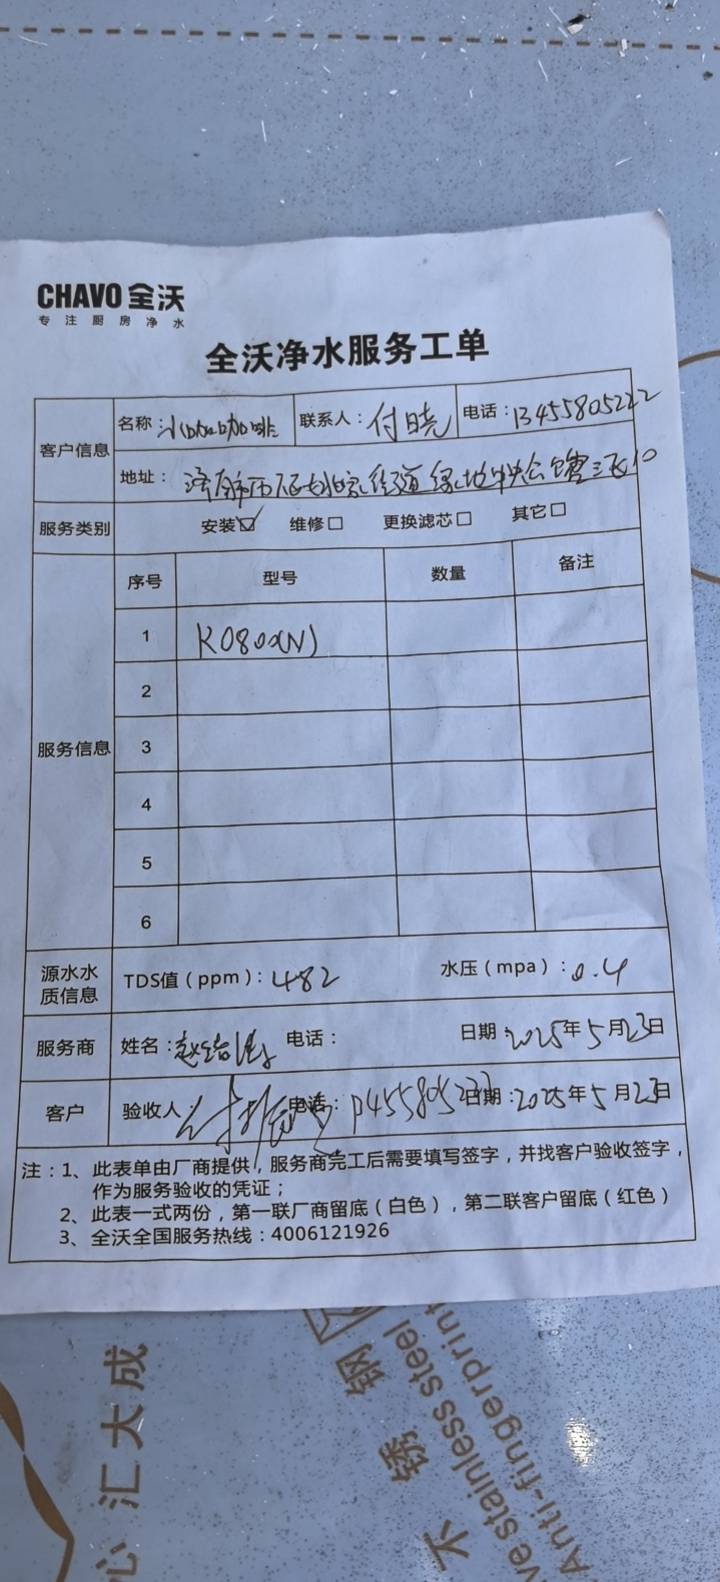 CHAVO 全沃
专注厨房净水
全沃净水服务工单
客户信息 名称: 咖啡 联系人: 付晓 电话: 13455805222
地址: 济南市 街道绿地中央公馆
服务类别 安装☑ 维修□ 更换滤芯□ 其它□
服务信息 序号 型号 数量 备注
1 RO800(N)
2
3
4
5
6
源水水质信息 TDS值(ppm): 482 水压(mpa): 0.4
服务商 姓名: 赵 电话: 日期: 2025年5月23日
客户 验收人 电话: 日期: 2025年5月23日
注:1、此表单由厂商提供,服务商完工后需要填写签字,并找客户验收签字,
作为服务验收的凭证;
2、此表一式两份,第一联厂商留底(白色),第二联客户留底(红色)
3、全沃全国服务热线:4006121926
心汇大成
不锈钢
stainless steel
Anti-fingerprint